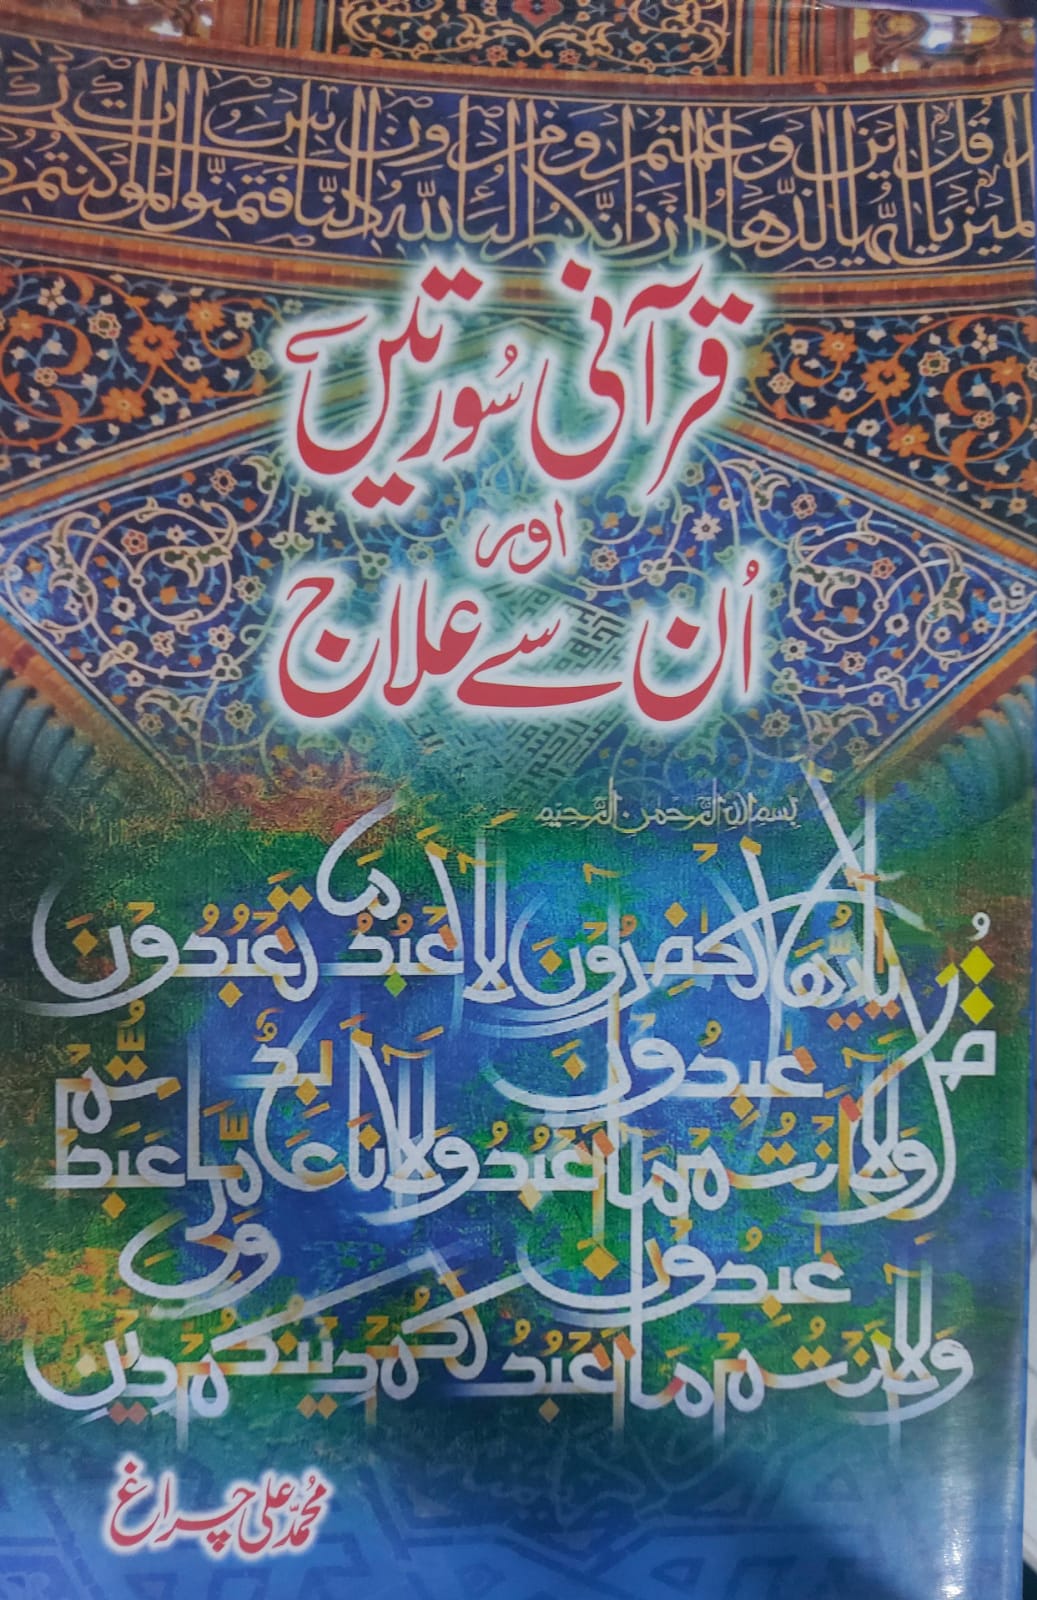 قرآنی سُورتیں
اور
اُن سے علاج
بسم اللہ الرحمن الرحیم
قُل یٰایُّها الکٰفِرُوْنَ لَا اَعْبُدُ مَا تَعْبُدُوْنَ
وَلَا اَنْتُمْ عٰبِدُوْنَ مَا اَعْبُدُ وَلَا اَنَا عَابِدٌ مَّا عَبَدْتُّمْ
وَلَا اَنْتُمْ عٰبِدُوْنَ مَا اَعْبُدُ لَکُمْ دِیْنُکُمْ وَلِیَ دِیْنِ
محمد علی چراغ